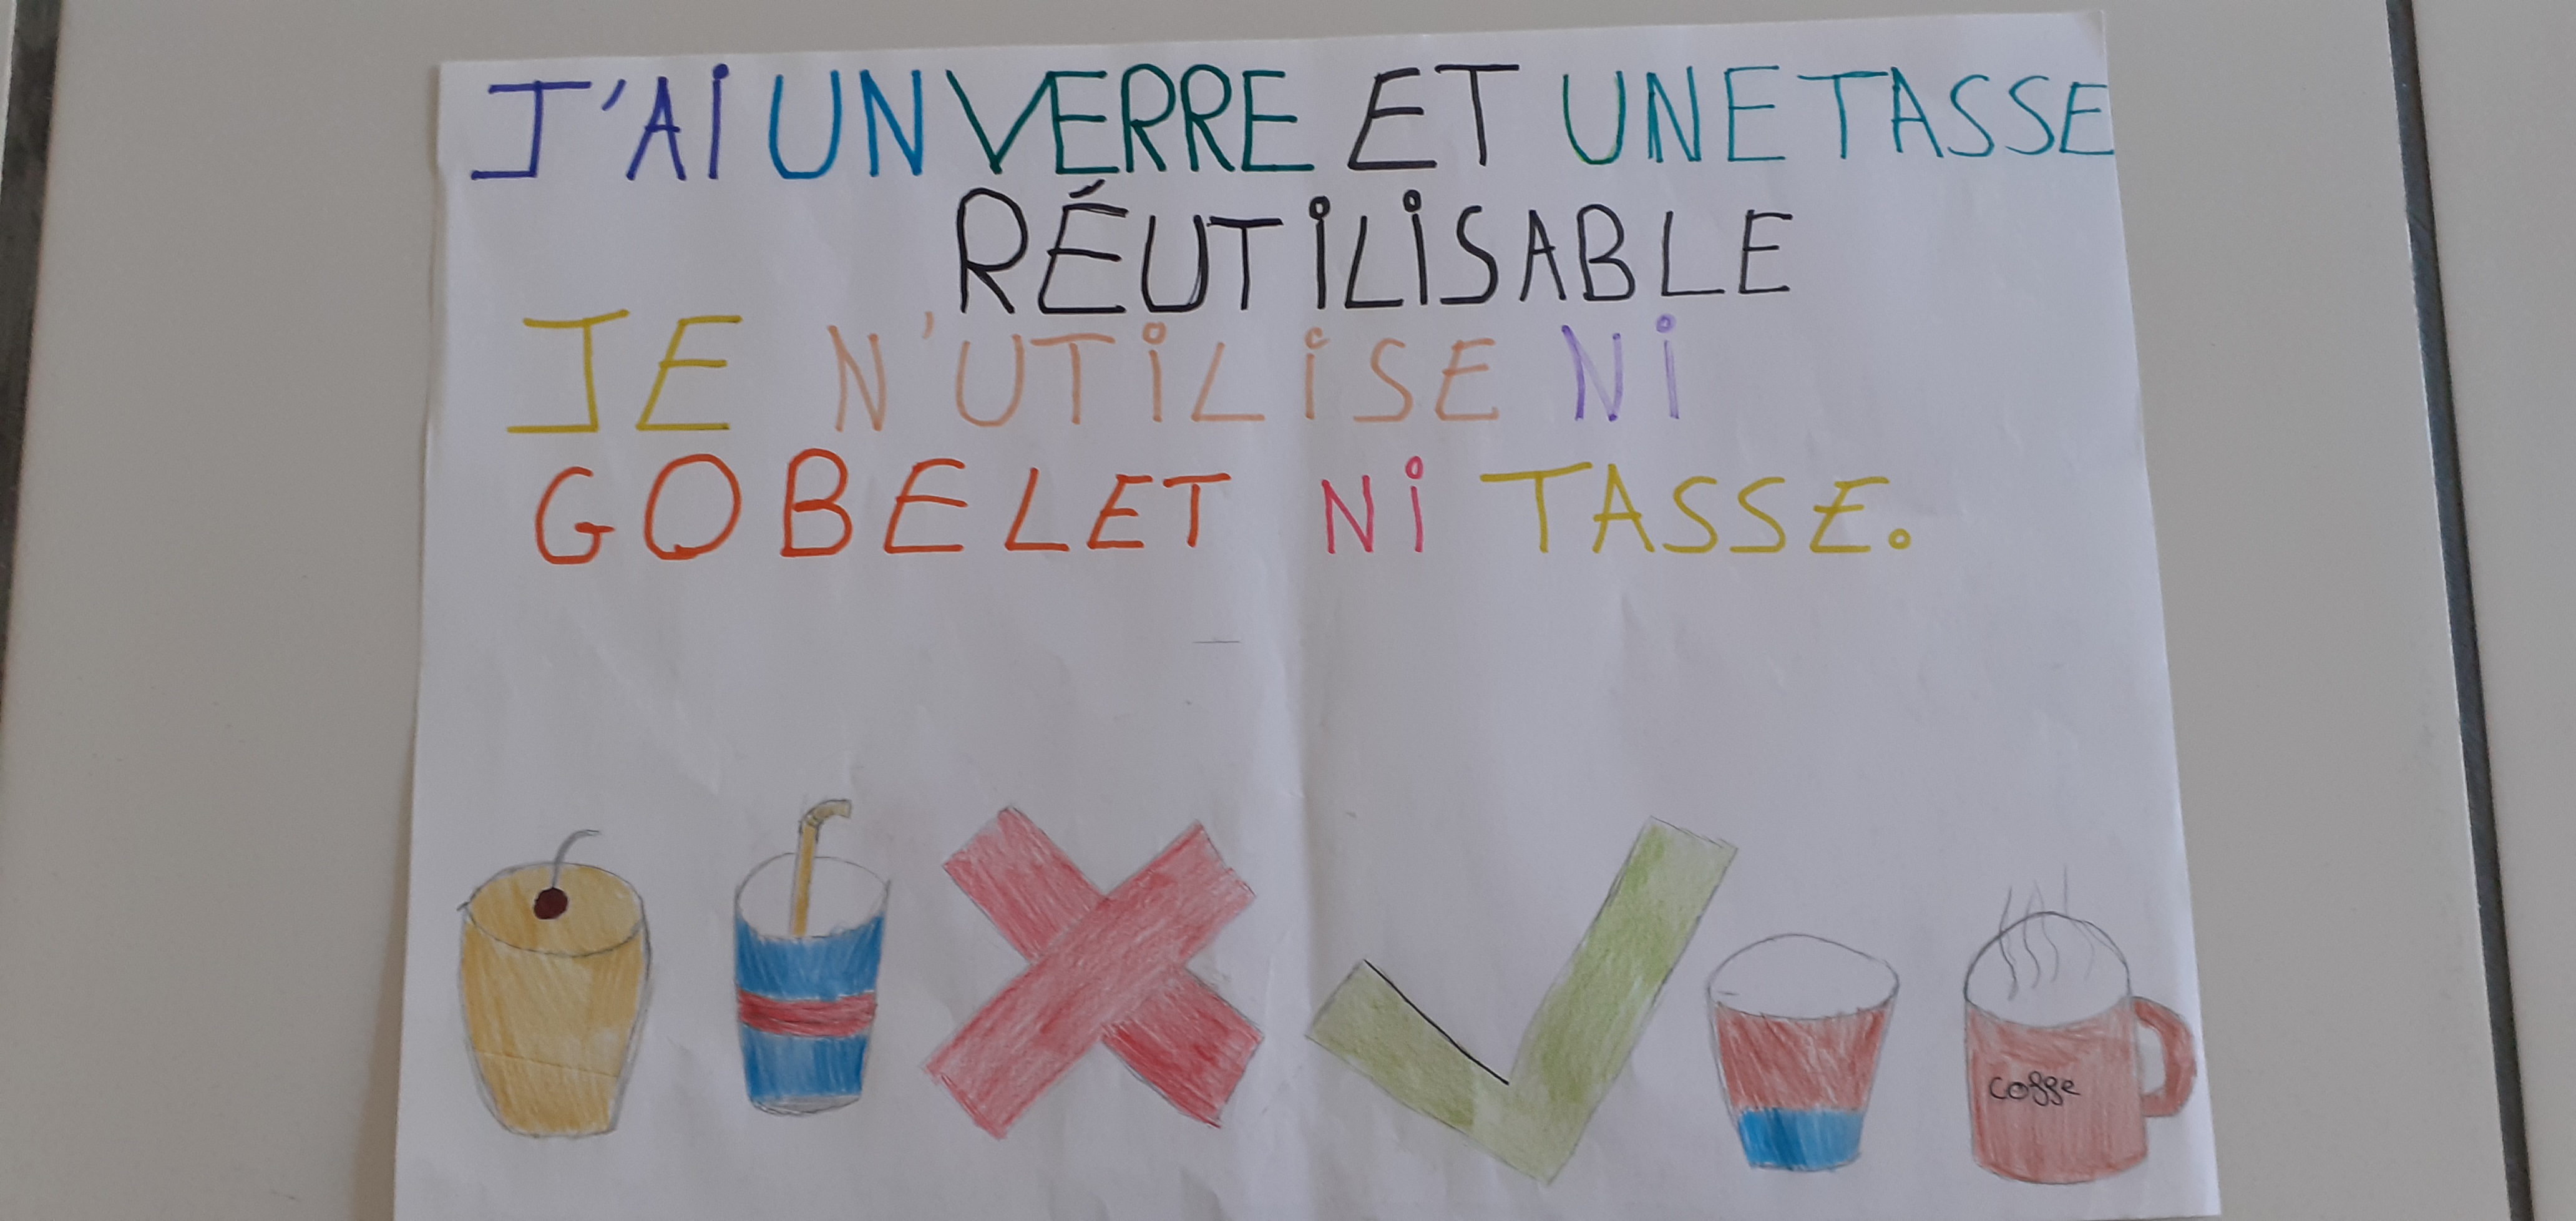 J'AI UN VERRE ET UNE TASSE
RÉUTILISABLE
JE N'UTILISE NI
GOBELET NI TASSE.
coffe